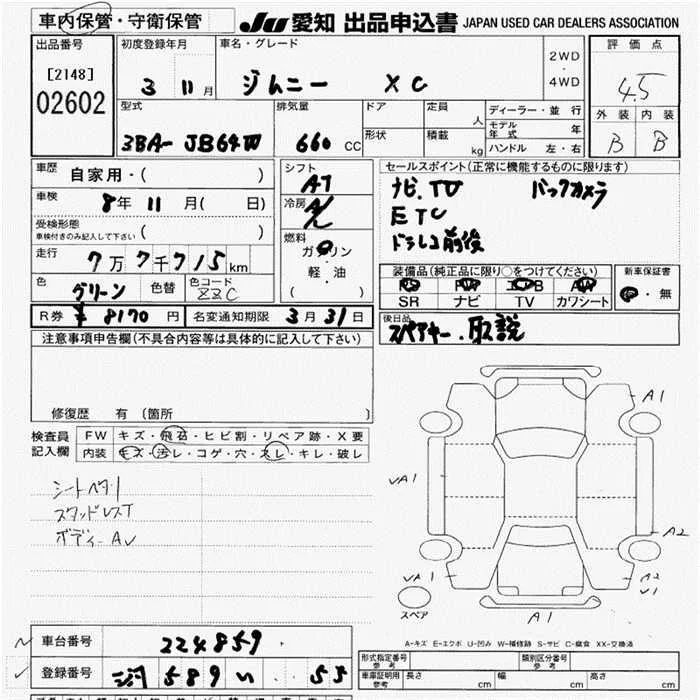 車内保管・守衛保管
JU 愛知 出品申込書 JAPAN USED CAR DEALERS ASSOCIATION
出品番号
[2148]
02602
初度登録年月
3 11月
車名・グレード
ジムニー XC
2WD
・
4WD
評価点
4.5
外装 内装
B B
型式
3BA- JB64W
排気量
660 CC
ドア
定員
人
形状
積載
kg
ディーラー・並行
モデル年式 年
ハンドル 左・右
車歴
自家用・( )
車検
8年11月( 日)
受検形態
車検付きのみ記入して下さい ( )
走行
7万7千715km
色
グリーン
色替
色コード
ZZC
シフト
AT
冷房
燃料
ガソリン
・
軽・油
( )
セールスポイント(正常に機能するものに限ります)
ナビ.TV バックカメラ
ETC
ドラレコ前後
装備品(純正品に限り○をつけてください)
SR ナビ TV カワシート
新車保証書
・無
R券 ¥8170円
名変通知期限 3月31日
後日品
スペアキー.取説
注意事項申告欄(不具合内容等は具体的に記入して下さい)
修復歴 有(箇所 )
検査員
記入欄
FW キズ・飛石・ヒビ割・リペア跡・X要
内装 キズ・汚レ・コゲ・穴・スレ・キレ・破レ
シートヘタリ
スタッドレスT
ボディーAU
A1
VA1
A2
VA1
A2
V1
スペア
A1
A-キズ E-エクボ U-凹み W-補修跡 S-サビ C-腐食 XX-交換済
車台番号
224859
登録番号
589 い 55
形式指定番号
参考
類別区分番号
参考
車庫証明用
参考
長さ cm
幅 cm
高さ cm